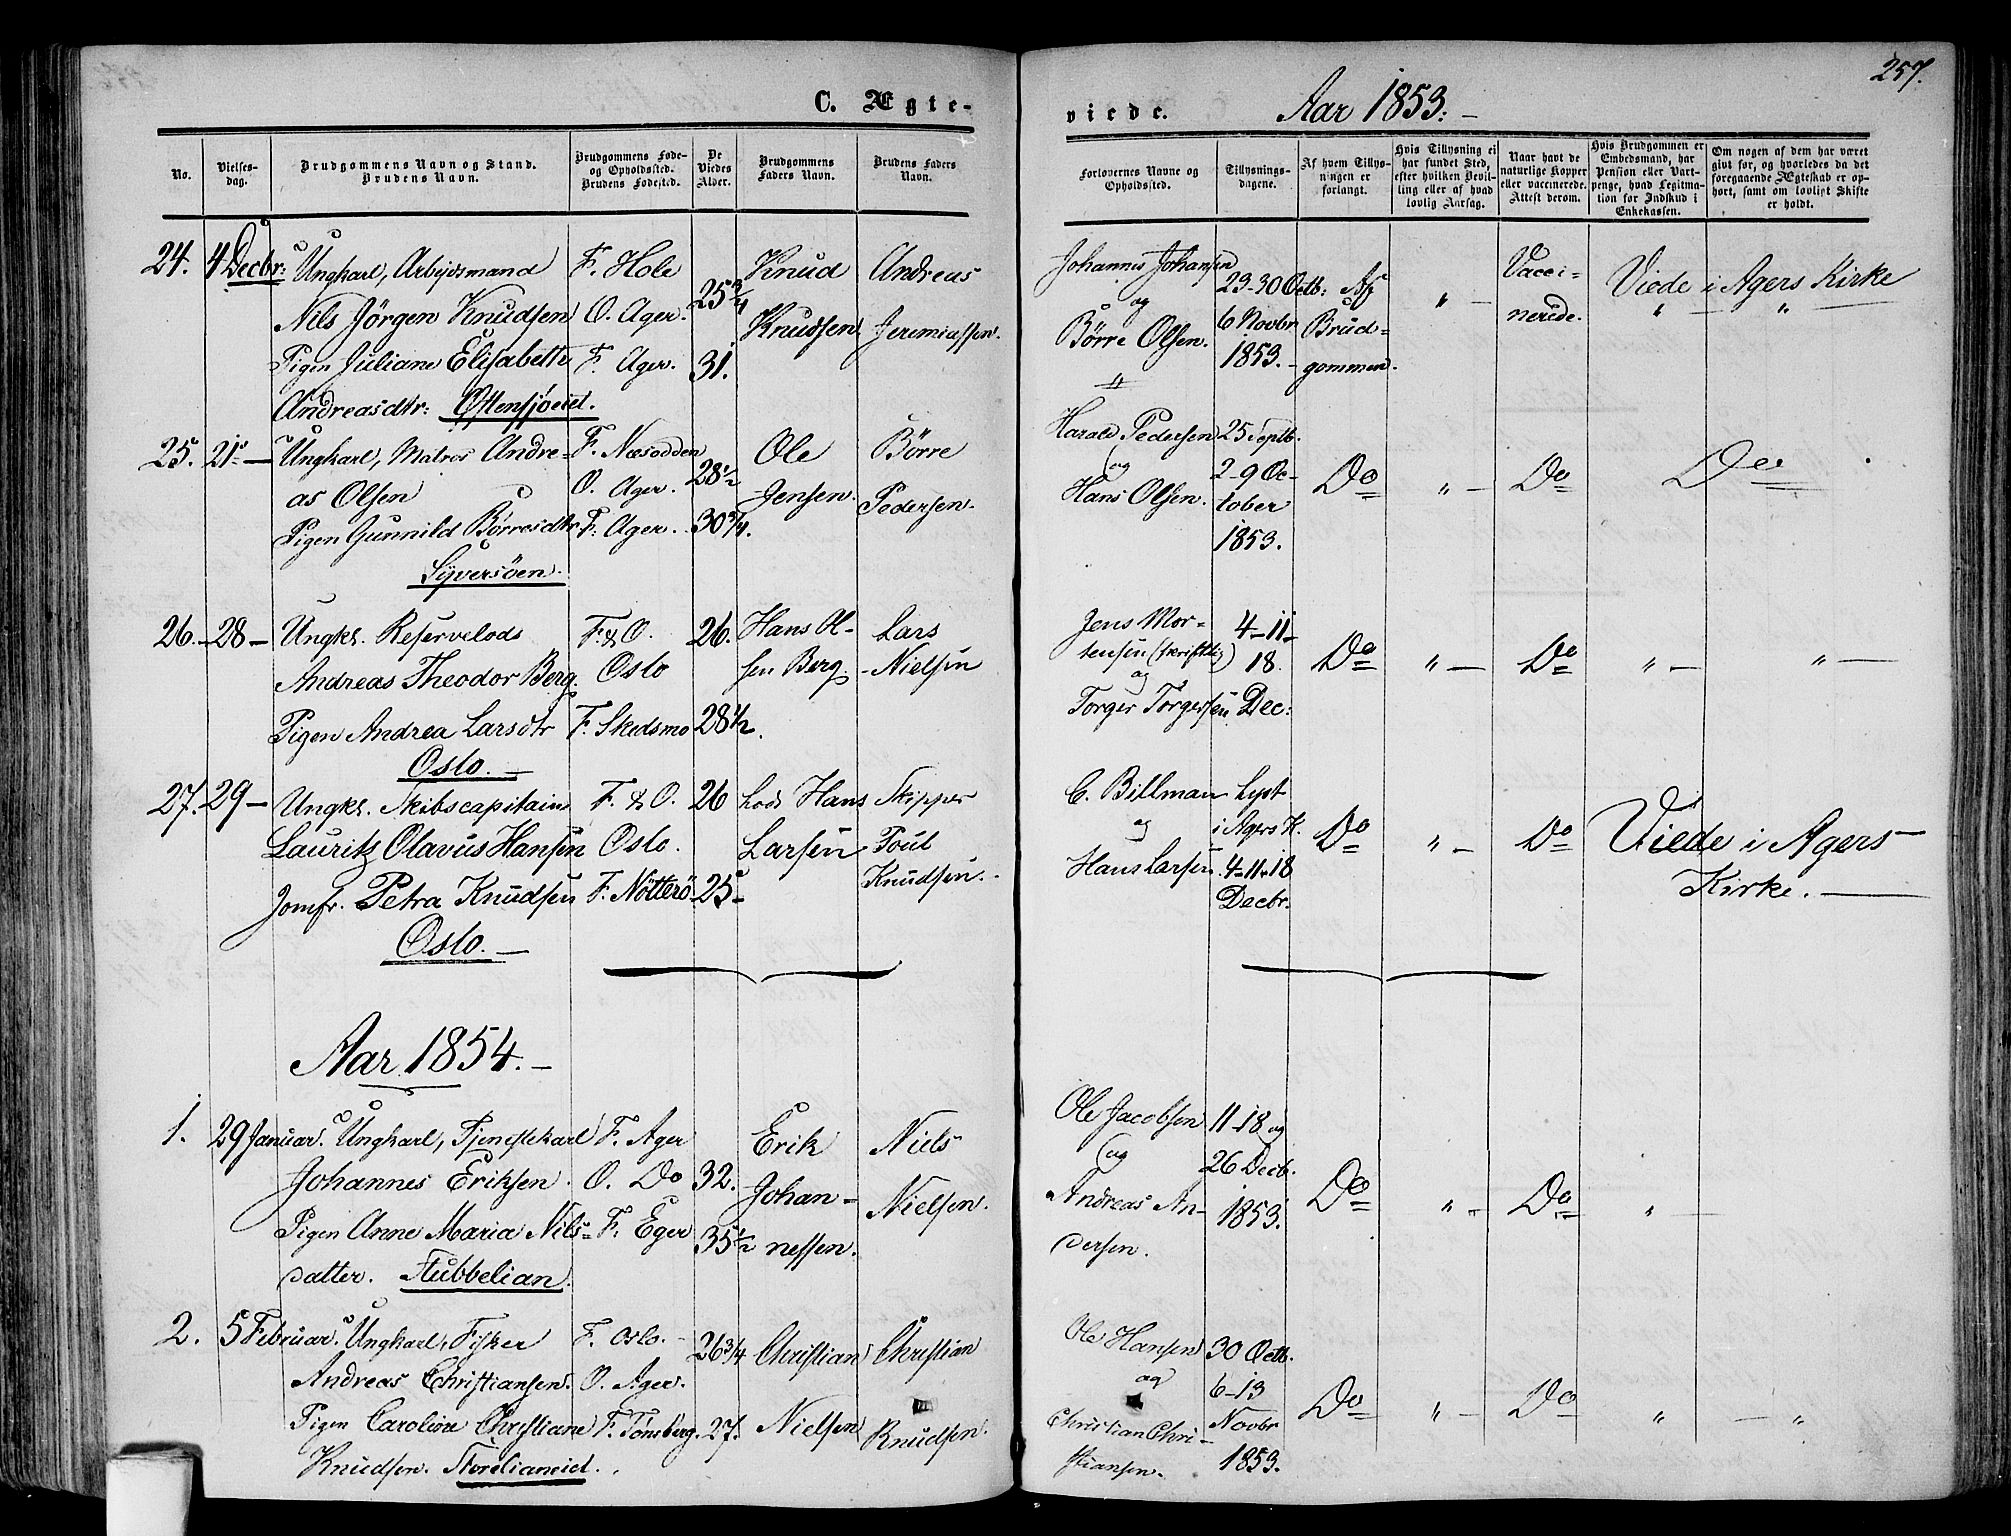 257.
C. Ægte-
viede. Aar 1853.
No.
Vielses-
dag.
Brudgommens Navn og Stand.
Brudens Navn.
Brudgommens Føde-
og Opholdssted.
Brudens Fødested.
De
Viedes
Alder.
Brudgommens
Faders Navn.
Brudens Faders
Navn.
Forlovernes Navne og
Opholdssted.
Tillysnings-
dagene.
Af hvem Tillys-
ningen er
forlangt.
Hvis Tillysning ei
har fundet Sted,
efter hvilken Bevil-
ling eller af hvad
lovlig Aarsag.
Naar havt de
naturlige Kopper
eller vaccinerede.
Attest derom.
Hvis Brudgommen er
Embedsmand, har
Pension eller Vart-
penge, hvad Legitima-
tion for Indskud i
Enkekassen.
Om nogen af dem har været
gift før, og hvorledes da det
foregaaende Ægteskab er op-
hørt, samt om lovligt Skifte
er holdt.
24. 4 Decbr: Ungkarl, Arbejdsmand
Nils Jörgen Knudsen
Pigen Juliane Elisabeth
Andreasdtr: Østensjøeid.
F. Hole
O. Ager.
F. Ager.
25 3/4
31.
Knud
Knudsen
Andreas
Jeremiassen.
Johannes Johansen
og
Börre Olsen.
23-30 Octb:
6 Novbr
1853.
Af
Brud-
gommen.
" -
Vacci-
nerede.
Viede i Agers Kirke
" - "
25. 21 - Ungkarl, Matros Andre-
as Olsen
Pigen Gunnild Börresdtr
Syversöen.
F. Næsodden
O. Ager.
F. Ager.
28 1/2
30 3/4.
Ole
Jensen.
Börre
Pedersen.
Harald Pedersen
og
Hans Olsen.
25 Septb.
2-9 Oc-
tober
1853.
Do
" -
Do
Do
26. - 28 - Ungkl. Reservelods
Andreas Theodor Berg.
Pigen Andrea Larsdtr
Oslo. -
F. & O.
Oslo
F. Skedsmo
26.
28 1/2.
Hans Ol-
sen Berg.
Lars
Nielsen
Jens Mor-
tensen (skriftlig)
og
Torger Torgersen
4-11-
18.
Dec:
Do
" -
Do
" -
" -
27. 29 - Ungkl. Skibscapitain
Lauritz Olavus Hansen
Jomfr. Petra Knudsen
Oslo. -
F. & O.
Oslo.
F. Nötterö
26
25 -
Lods Hans
Larsen
Skipper
Poul
Knudsen.
C. Billman
og
Hans Larsen.
Lyst
i Agers K.
4-11-18
Decbr.
Do
" -
Do
Viede i Agers
Kirke. -
Aar 1854. -
1. 29 Januar. Ungkarl, Tjenestekarl
Johannes Eriksen.
Pigen Anne Maria Nils-
datter. Stubbelian.
F. Ager
O. Do
F. Eger
32.
35 1/2
Erik
Johan-
nessen.
Niels
Nielsen.
Ole Jacobsen
og
Andreas An-
dersen.
11-18 og
26 Decb.
1853.
Do
" -
Do
" -
2. 5 Februar. Ungkarl, Fisker
Andreas Christiansen.
Pigen Caroline Christiane
Knudsen.
F. Oslo.
O. Ager.
F. Tönsberg.
26 3/4
27.
Christian
Nielsen
Christian
Knudsen.
Ole Hansen
og
Christian Chri-
stiansen.
30 Octb.
6-13
Novbr
1853.
Do
" -
Do
" - "